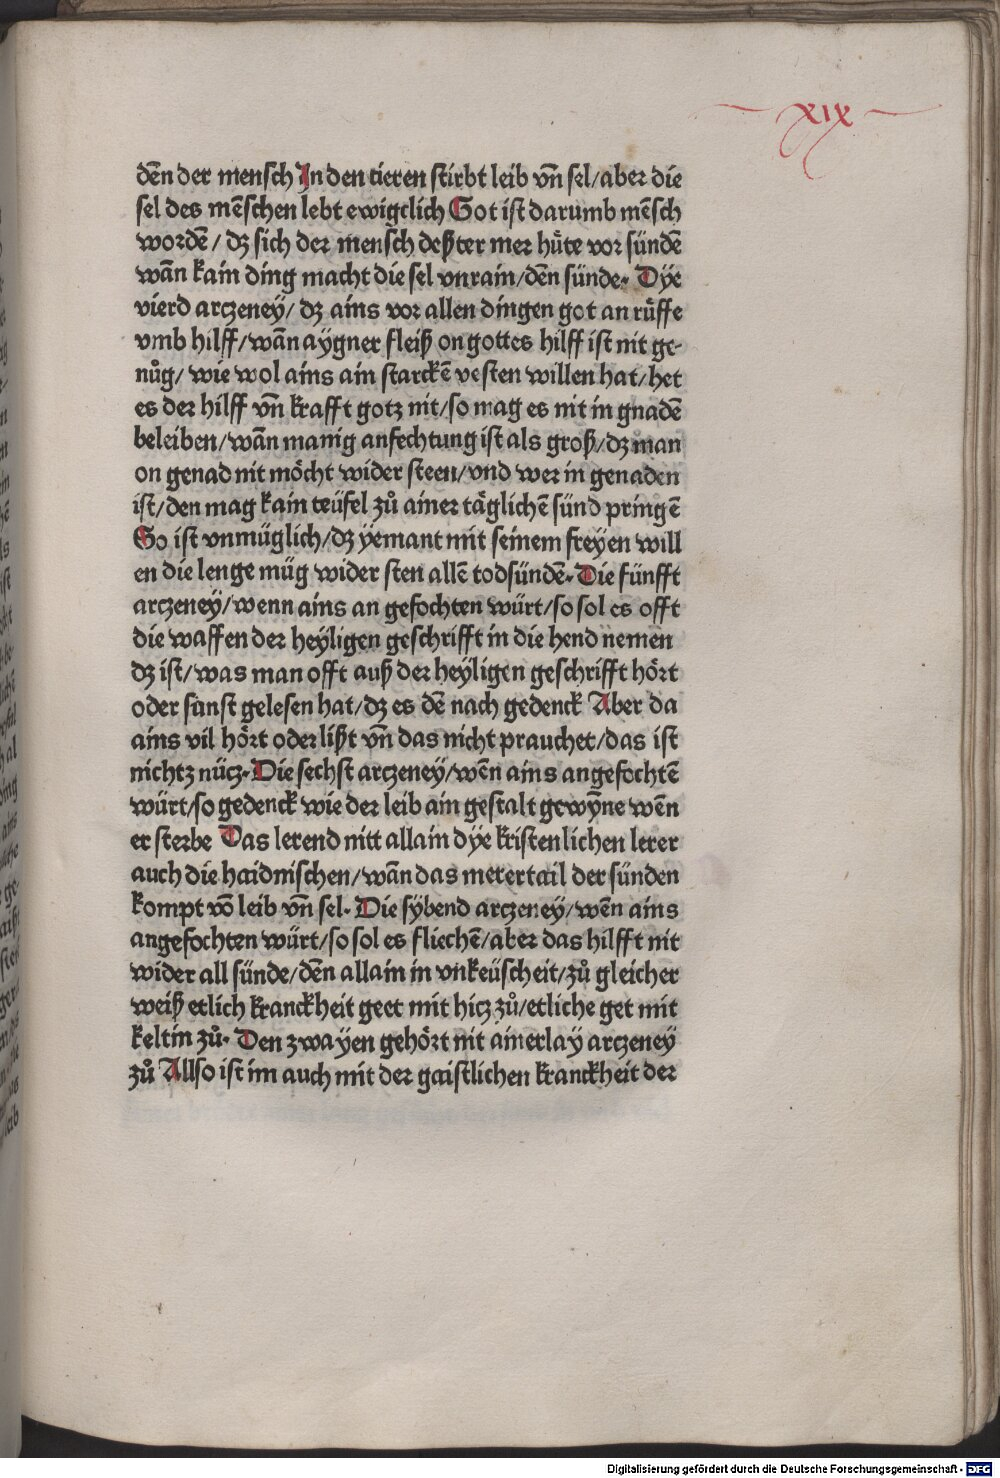 xix
dēn der mensch In den tieren stirbt leib vn̄ sel/aber die
sel des mēschen lebt ewigclich Got ist darumb mēsch
wordē/ dz sich der mensch deßter mer hu̎te vor sündē
wān kain ding macht die sel vnrain/dēn sünde. Dye
vierd arczeney/ dz ains vor allen dingen got an ru̎ffe
vmb hilff/wān aygner fleiß on gottes hilff ist nit ge-
nůg/ wie wol ains ain starckē vesten willen hat/het
es der hilff vn̄ krafft gotz nit/so mag es nit in gnadē
beleiben/wān manig anfechtung ist als groß/dz man
on genad nit möcht wider steen/vnd wer in genaden
ist/den mag kain teüfel zů ainer täglichē sünd pringē
So ist vnmüglich/dz yemant mit seinem freyen will
en die lenge müg wider sten allē todsündē. Die fünfft
arczeney/wenn ains an gefochten würt/so sol es offt
die waffen der heyligen geschrifft in die hend nemen
dz ist/was man offt auß der heyligen geschrifft hört
oder sunst gelesen hat/dz es dē nach gedenck Aber da
ains vil hört oder lißt vn̄ das nicht prauchet/das ist
nichtz nücz. Die sechst arczeney/wēn ains angefochtē
würt/so gedenck wie der leib ain gestalt gewȳne wēn
er sterbe Das lerend nitt allain dye kristenlichen lerer
auch die haidnischen/wān das merertail der sünden
kompt vō leib vn̄ sel. Die sybend arczeney/wēn ains
angefochten würt/so sol es fliechē/aber das hilfft nit
wider all sünde/dēn allain in vnkeüscheit/zů gleicher
weiß etlich kranckheit geet mit hicz zů/etliche get mit
keltin zů. Den zwayen gehört nit ainerlay arczeney
zů Allso ist im auch mit der gaistlichen kranckheit der
Digitalisierung gefördert durch die Deutsche Forschungsgemeinschaft - DFG